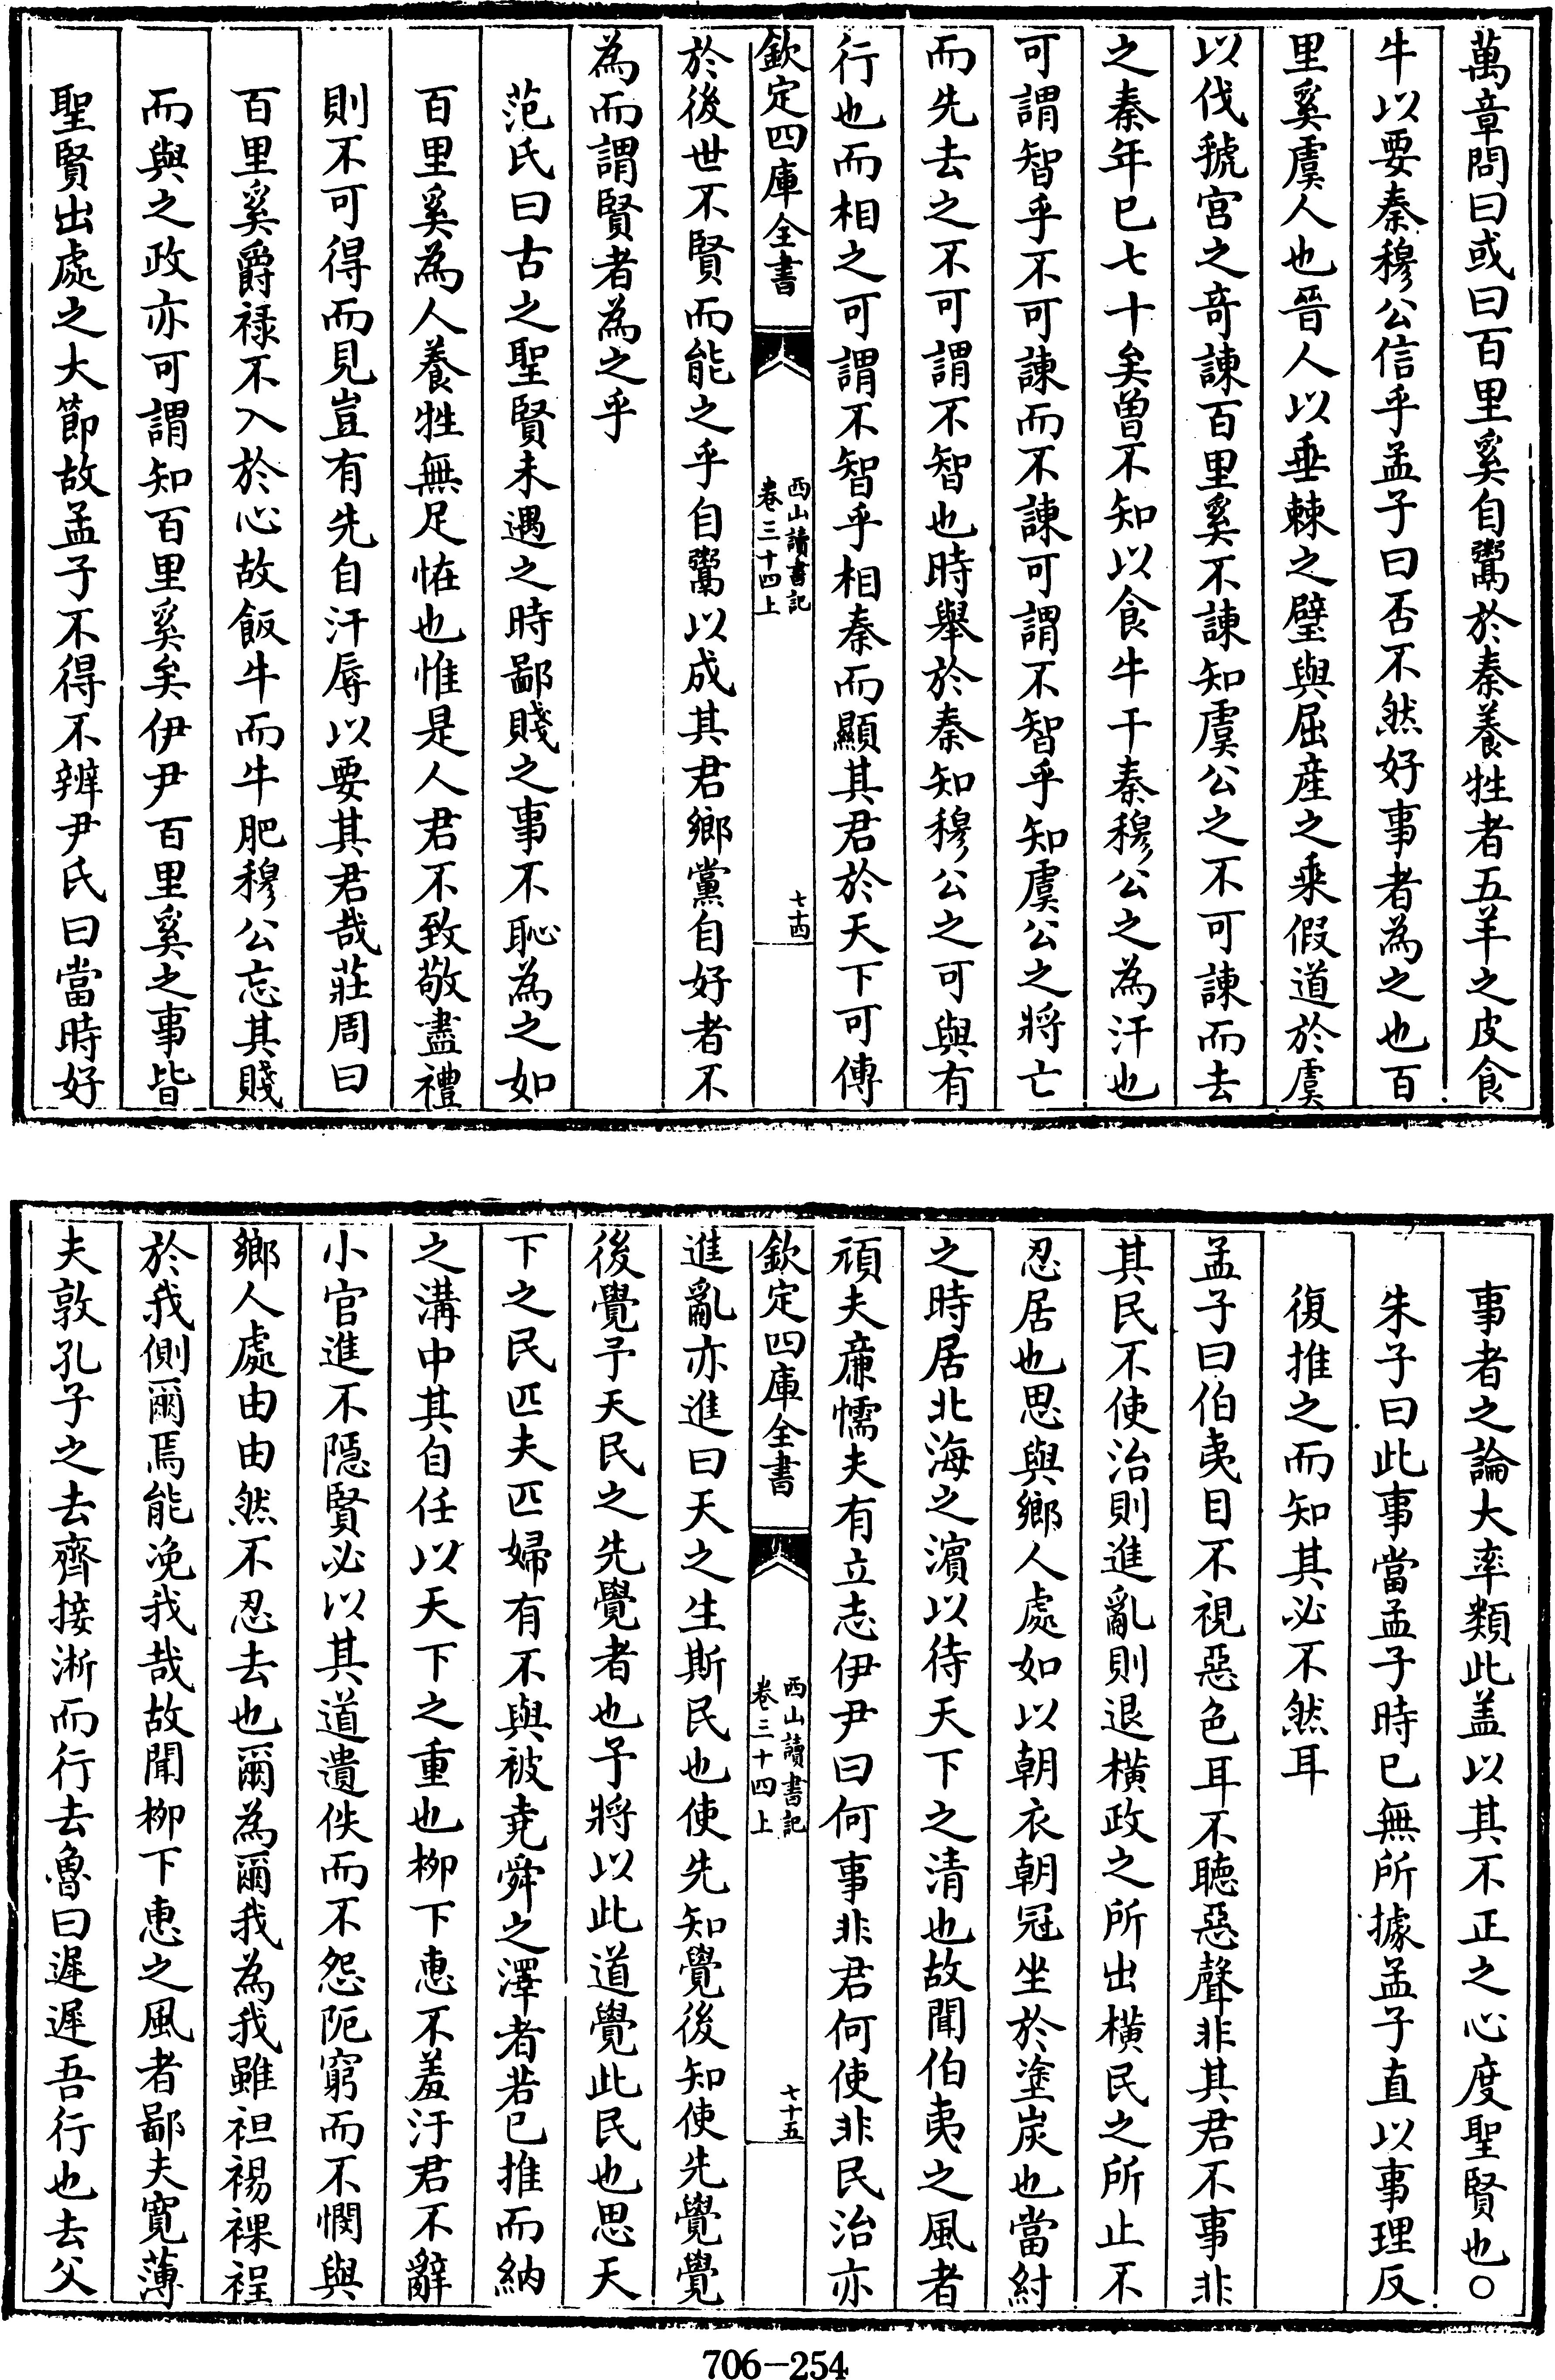 萬章問曰或曰百里奚自鬻於秦養牲者五羊之皮食
牛以要秦穆公信乎孟子曰否不然好事者為之也百
里奚虞人也晉人以垂棘之璧與屈產之乘假道於虞
以伐虢宫之奇諫百里奚不諫知虞公之不可諫而去
之秦年已七十矣曽不知以食牛干秦穆公之為汙也
可謂智乎不可諫而不諫可謂不智乎知虞公之將亡
而先去之不可謂不智也時舉於秦知穆公之可與有
行也而相之可謂不智乎相秦而顯其君於天下可傳
欽定四庫全書
西山讀書記
卷三十四上
七十四
於後世不賢而能之乎自鬻以成其君鄉黨自好者不
為而謂賢者為之乎
范氏曰古之聖賢未遇之時鄙賤之事不恥為之如
百里奚為人養牲無足怪也惟是人君不致敬盡禮
則不可得而見豈有先自汙辱以要其君哉莊周曰
百里奚爵禄不入於心故飯牛而牛肥穆公忘其賤
而與之政亦可謂知百里奚矣伊尹百里奚之事皆
聖賢出處之大節故孟子不得不辨尹氏曰當時好
事者之論大率類此盖以其不正之心度聖賢也○
朱子曰此事當孟子時已無所據孟子直以事理反
復推之而知其必不然耳
孟子曰伯夷目不視惡色耳不聽惡聲非其君不事非
其民不使治則進亂則退横政之所出横民之所止不
忍居也思與鄉人處如以朝衣朝冠坐於塗炭也當紂
之時居北海之濵以待天下之清也故聞伯夷之風者
頑夫亷懦夫有立志伊尹曰何事非君何使非民治亦
欽定四庫全書
西山讀書記
卷三十四上
七十五
進亂亦進曰天之生斯民也使先知覺後知使先覺覺
後覺予天民之先覺者也予將以此道覺此民也思天
下之民匹夫匹婦有不與被堯舜之澤者若已推而納
之溝中其自任以天下之重也栁下惠不羞汙君不辭
小官進不隱賢必以其道遺佚而不怨阨窮而不憫與
鄉人處由由然不忍去也爾為爾我為我雖袒裼裸裎
於我側爾焉能浼我哉故聞栁下惠之風者鄙夫寛薄
夫敦孔子之去齊接淅而行去魯曰遲遲吾行也去父
706-254